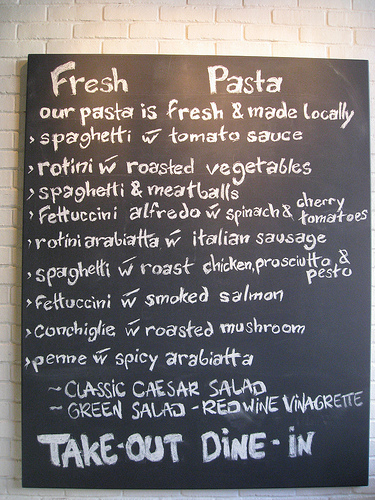 Fresh Pasta
our pasta is fresh & made locally
› spaghetti w̄ tomato sauce
› rotini w̄ roasted vegetables
› spaghetti & meatballs
› fettuccini alfredo w̄ spinach & cherry tomatoes
› rotini arabiatta w̄ italian sausage
› spaghetti w̄ roast chicken, prosciutto, & pesto
› fettuccini w̄ smoked salmon
› conchiglie w̄ roasted mushroom
› penne w̄ spicy arabiatta
~ CLASSIC CAESAR SALAD
~ GREEN SALAD - RED WINE VINAGRETTE
TAKE-OUT DINE-IN